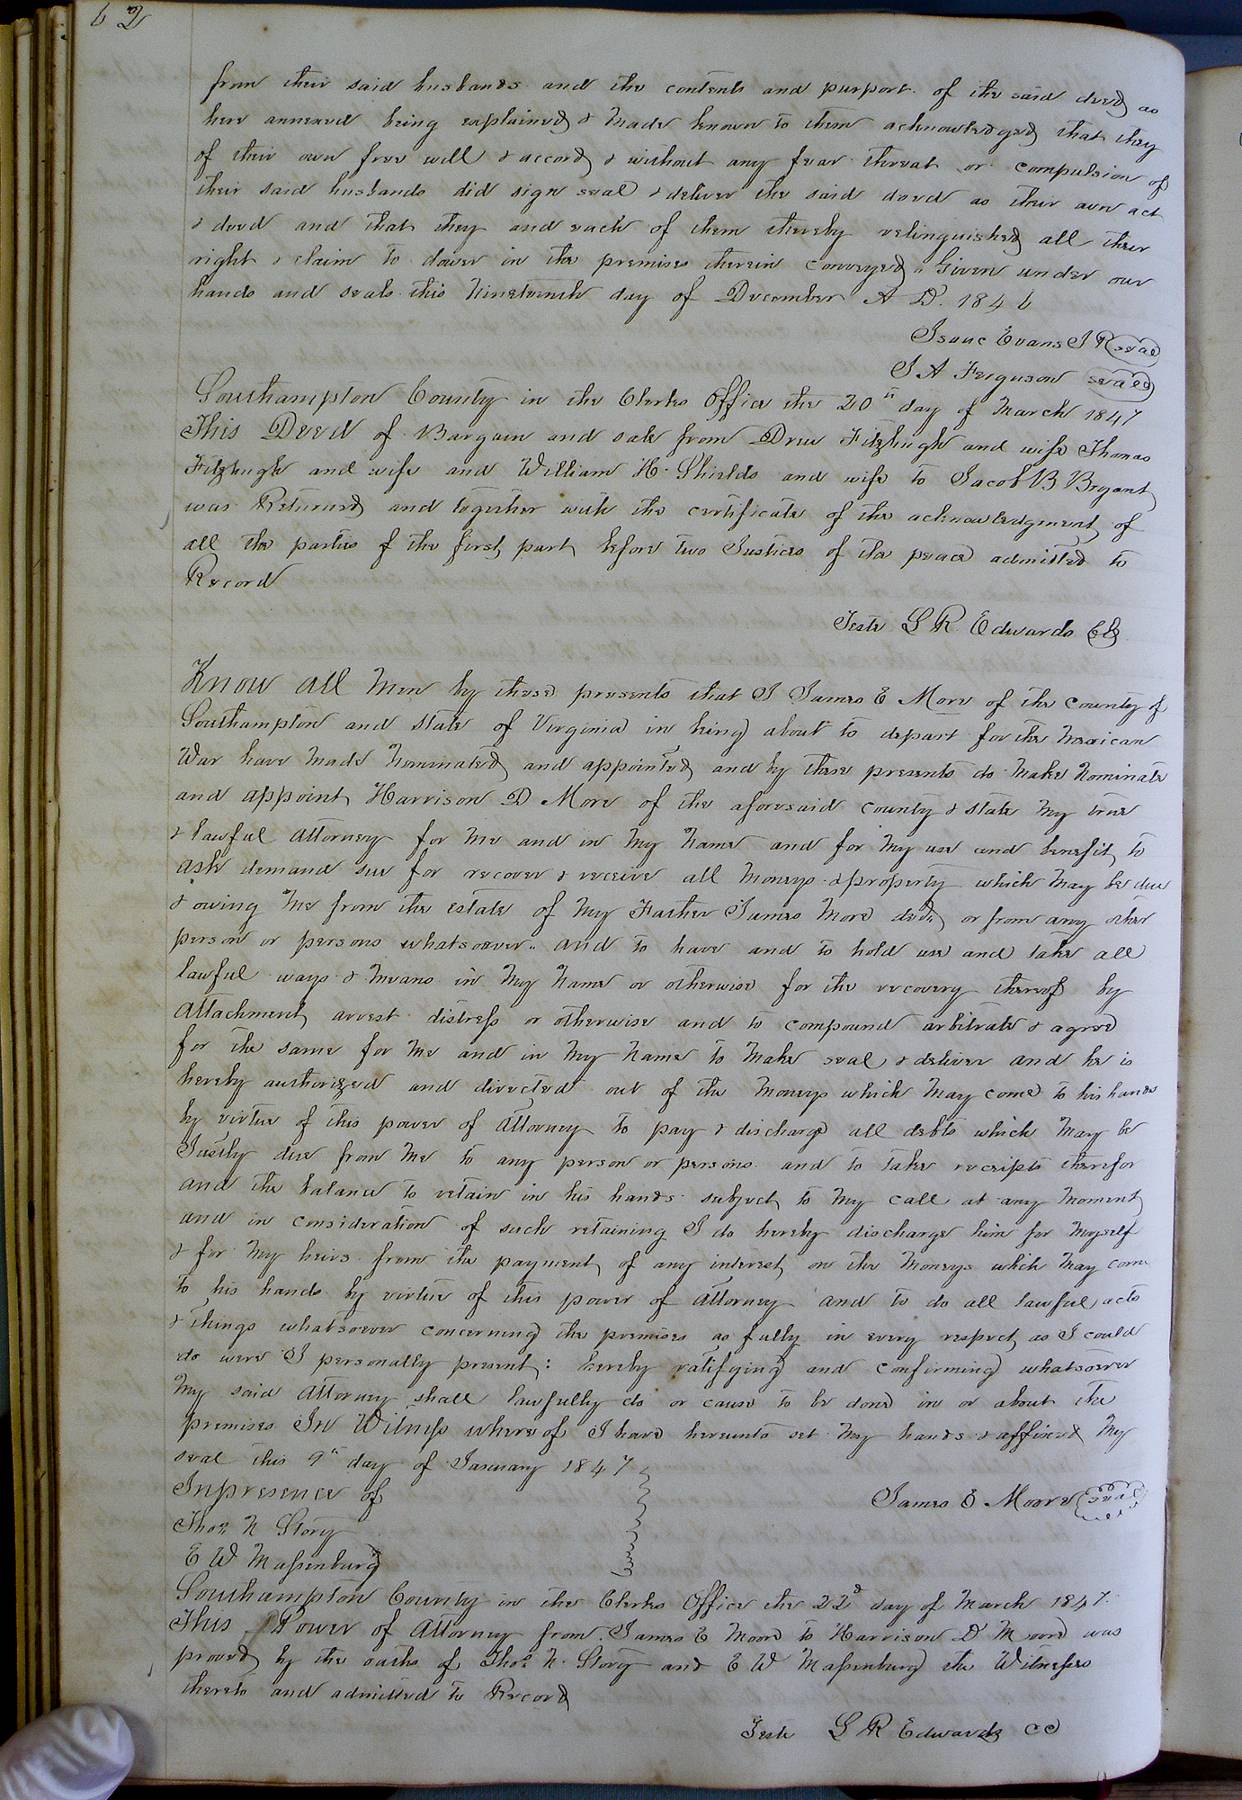 62
from their said husbands and the contents and purport of the said deed as
here annexed being explained & made known to them acknowledged that they
of their own free will & accord & without any fear threat or compulsion of
their said husbands did sign seal & deliver the said deed as their own act
& deed and that they and each of them thereby relinquished all their
right & claim to dower in the premises therein conveyed. Given under our
hands and seals this Nineteenth day of December A D. 1846
Isaac Evans J P seal
J A Ferguson seal
Southampton County in the Clerks Office the 20th day of March 1847
This Deed of Bargain and sale from Drew Fitzhugh and wife Thomas
Fitzhugh and wife and William H. Shields and wife to Jacob B Bryant
was Returned and together with the certificate of the acknowledgment of
all the parties of the first part before two Justices of the peace admitted to
Record
Teste L R Edwards Cl
Know all Men by these presents that I James E More of the County of
Southampton and State of Virginia in being about to depart for the Mexican
War have Made Nominated and appointed and by these presents do Make Nominate
and appoint Harrison D More of the aforesaid County & State My true
& lawful Attorney for Me and in My Name and for My use and benefit to
ask demand sue for recover & receive all Moneys & property which May be due
& owing Me from the estate of My Farther James More decd, or from any other
person or persons whatsoever. and to have and to hold use and take all
lawful ways & Means in My Name or otherwise for the recovery thereof by
Attachment arrest distress or otherwise and to compound arbitrate & agree
for the same for Me and in My Name to Make seal & deliver and he is
hereby authorized and directed out of the Moneys which May come to his hands
by virtue of this power of Attorney to pay & discharge all debts which May be
Justly due from Me to any person or persons and to take receipts therefor
and the balance to retain in his hands subject to My call at any Moment
and in consideration of such retaining I do hereby discharge him for Myself
& for My heirs from the payment of any interest on the Moneys which May come
to his hands by virtue of this power of Attorney and to do all lawful acts
& things whatsoever concerning the premises as fully in every respect as I could
do were I personally present: hereby ratifying and confirming whatsoever
My said Attorney shall lawfully do or cause to be done in or about the
premises In Witness whereof I have hereunto set My hands & affixed My
seal this 9th day of January 1847
In presence of
James E Moore seal
Thos. N Story
E W Massenburg
Southampton County in the Clerks Office the 22d day of March 1847.
This Power of Attorney from James E Moore to Harrison D Moore was
proved by the oaths of Thos. N. Story and E W Massenburg the Witnesses
thereto and admitted to Record
Teste L R Edwards CC